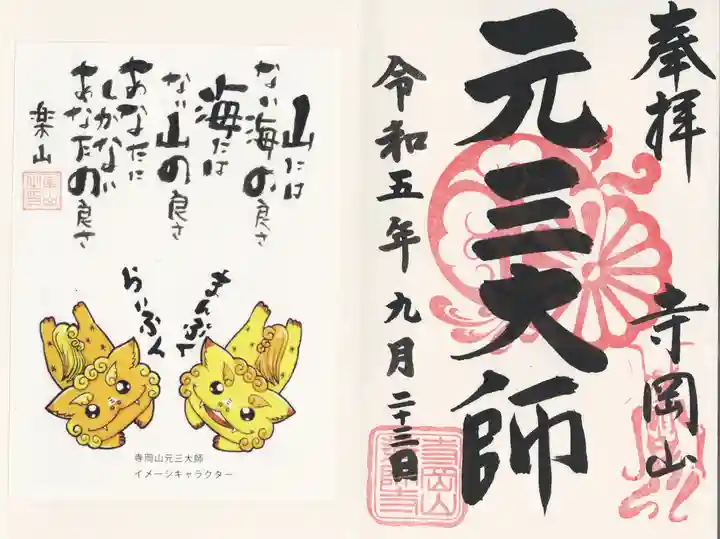 奉拝
寺岡山
元三大師
令和五年九月二十三日
山には
ない海の良さ
海には
ない山の良さ
あなたに
しかない
あなたの良さ
楽山
まんぷく
らいふく
寺岡山元三大師
イメージキャラクター